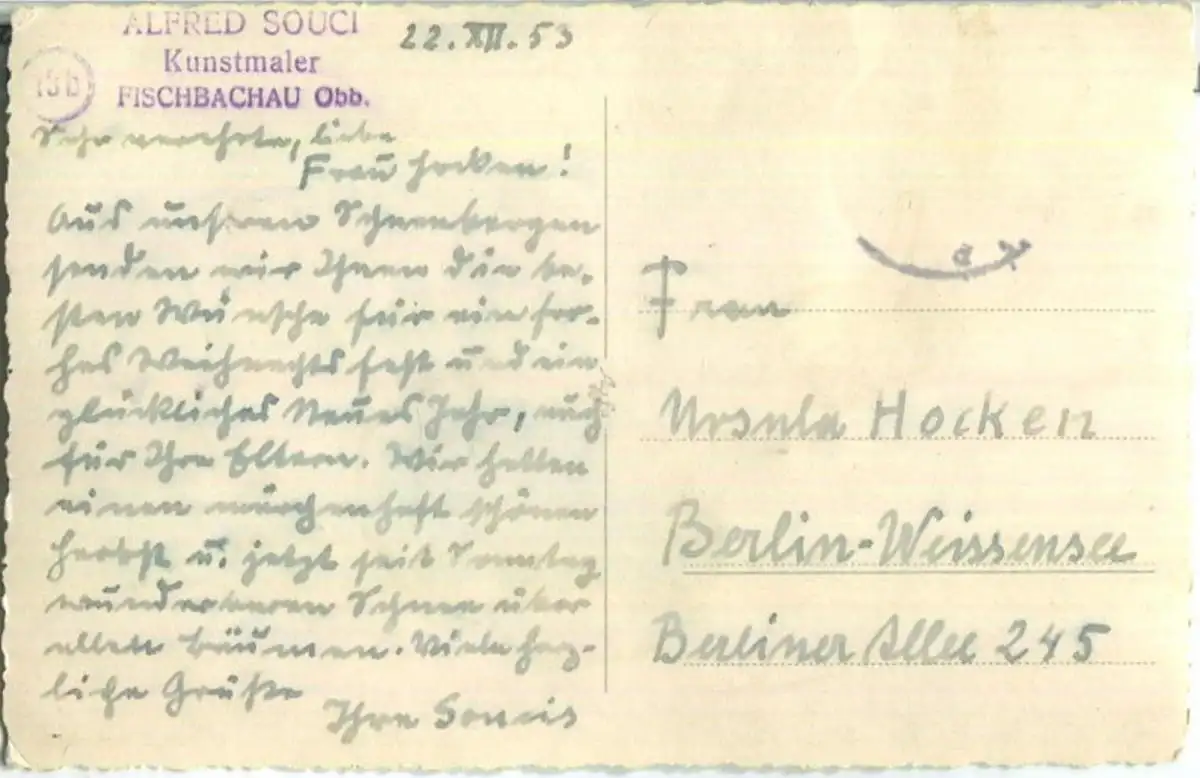 ALFRED SOUCI
Kunstmaler
FISCHBACHAU Obb.
22.XII.53
Sehr verehrte, liebe
Frau Hocken!
Aus unseren Schneebergen
senden wir Ihnen die be-
sten Wünsche für ein fro-
hes Weihnachtsfest und ein
glückliches Neues Jahr, auch
für Ihre Eltern. Wir hatten
einen märchenhaft schönen
Herbst u. jetzt seit Sonntag
wunderbaren Schnee über
allen Bäumen. Viele herz-
liche Grüße
Ihre Soucis
Frau
Ursula Hocken
Berlin-Weissensee
Berliner Allee 245